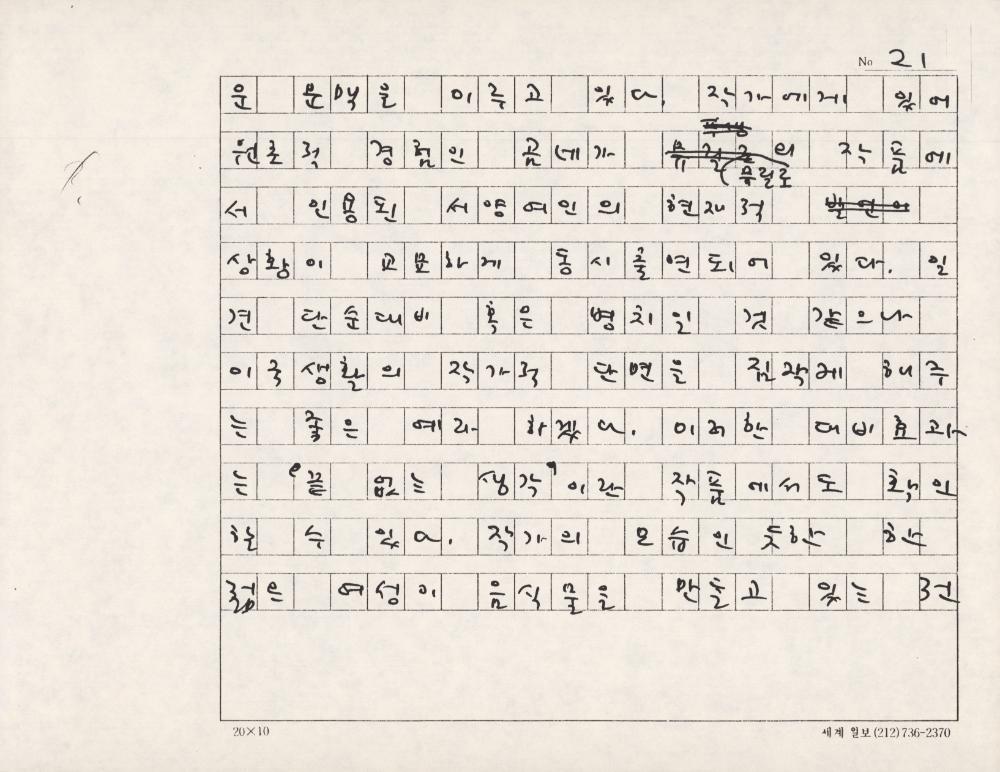 No 21
운 문맥을 이루고 있다. 작가에게 있어
원초적 경험인 곰네가 무릴로의 작품에
서 인용된 서양여인의 현재적
상황이 교묘하게 동시출연되어 있다. 일
견 단순대비 혹은 병치일 것 같으나
이국생활의 작가적 단면을 짐작케 해주
는 줄은 예라 하겠다. 이러한 대비효과
는 "끝 없는 생각"이란 작품에서도 확인
할 수 있다. 작가의 모습인 듯한 한
젊은 여성이 음식물을 만들고 있는 전
20×10
세계 일보 (212) 736-2370